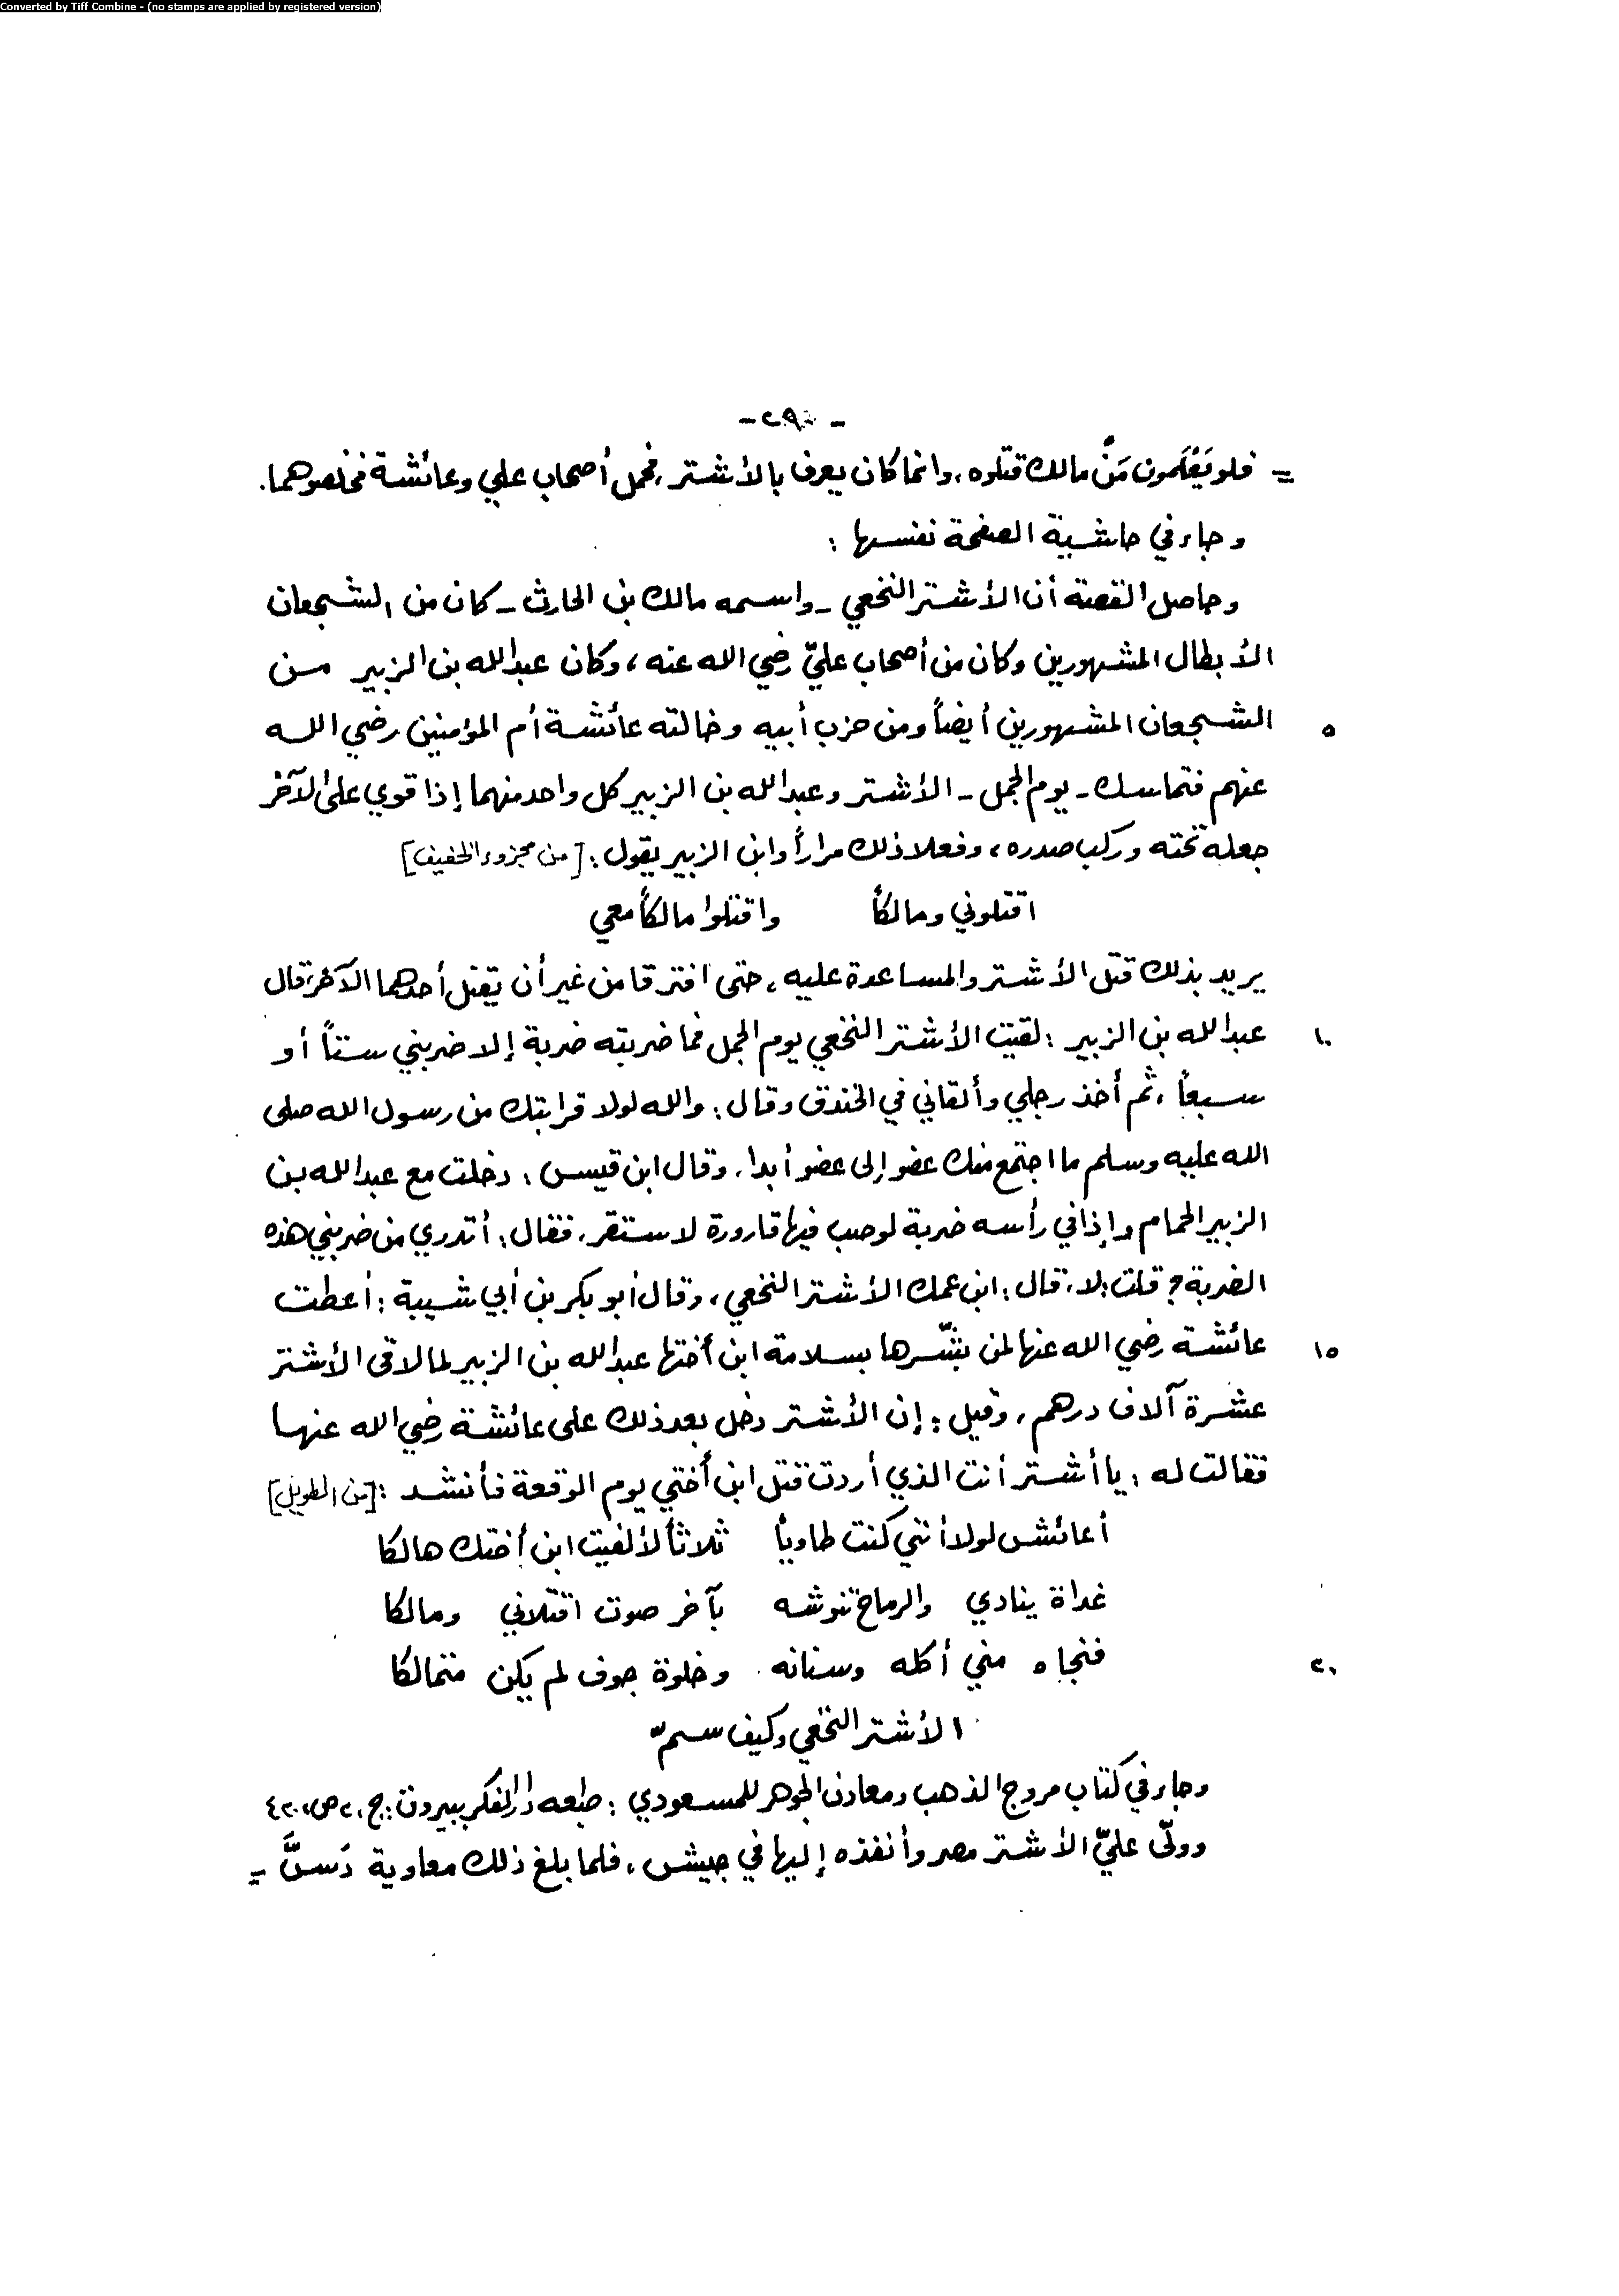 Converted by Tiff Combine - (no stamps are applied by registered version)
= فلو يَعْلَمون مَنْ مالك قتلوه، وانما كان يعرف بالأشتر، فحمل أصحاب علي وعائشة فخلصوهما.
وجاء في حاشية الصفحة نفسها :
وحاصل القصة أن الأشتر النخعي - واسمه مالك بن الحارث - كان من الشجعان
الأبطال المشهورين وكان من أصحاب عليّ رضي الله عنه، وكان عبدالله بن الزبير من
الشجعان المشهورين أيضاً ومن حزب أبيه وخالته عائشة أم المؤمنين رضي الله ٥
عنهم فتماسك - يوم الجمل - الأشتر وعبدالله بن الزبير كل واحد منهما إذا قوي على الآخر
جعله تحته وركب صدره، وفعلا ذلك مراراً وابن الزبير يقول : [من مجزوء الخفيف]
اقتلوني ومالكاً واقتلوا مالكاً معي
يريد بذلك قتل الأشتر والمساعدة عليه، حتى افترقا من غير أن يقتل أحدهما الآخر، قال
عبدالله بن الزبير : لقيت الأشتر النخعي يوم الجمل فما ضربته ضربة إلا ضربني ستاً أو ١٠
سبعاً، ثم أخذ رجلي وألقاني في الخندق وقال : والله لولا قرابتك من رسول الله صلى
الله عليه وسلم ما اجتمع منك عضو إلى عضو أبدا، وقال ابن قيس : دخلت مع عبدالله بن
الزبير الحمام وإذا في رأسه ضربة لو صب فيها قارورة لاستقر، فقال : أتدري من ضربني هذه
الضربة؟ قلت : لا، قال : ابن عمك الأشتر النخعي، وقال أبو بكر بن أبي شيبة : أعطت
عائشة رضي الله عنها لمن بشّرها بسلامة ابن أختها عبدالله بن الزبير لما لاقى الأشتر ١٥
عشرة آلاف درهم، وقيل : إن الأشتر دخل بعد ذلك على عائشة رضي الله عنها
فقالت له : يا أشتر أنت الذي أردت قتل ابن أختي يوم الوقعة فأنشد : [من الطويل]
أعائش لولا أنني كنت طاوياً ثلاثاً لألفيت ابن أختك هالكا
غداة ينادي والرماح تنوشه بآخر صوت اقتلاني ومالكا
فنجاه مني أكله وسنانه وخلوة جوف لم يكن متمالكا ٢٠
الأشتر النخعي وكيف سمّ
وجاء في كتاب مروج الذهب ومعادن الجوهر للمسعودي : طبعة دار الفكر ببيروت : ج، ٢ ص، ٤٢٠
وولّى عليّ الأشتر مصر وأنفذه إليها في جيش، فلما بلغ ذلك معاوية دَسَّ =